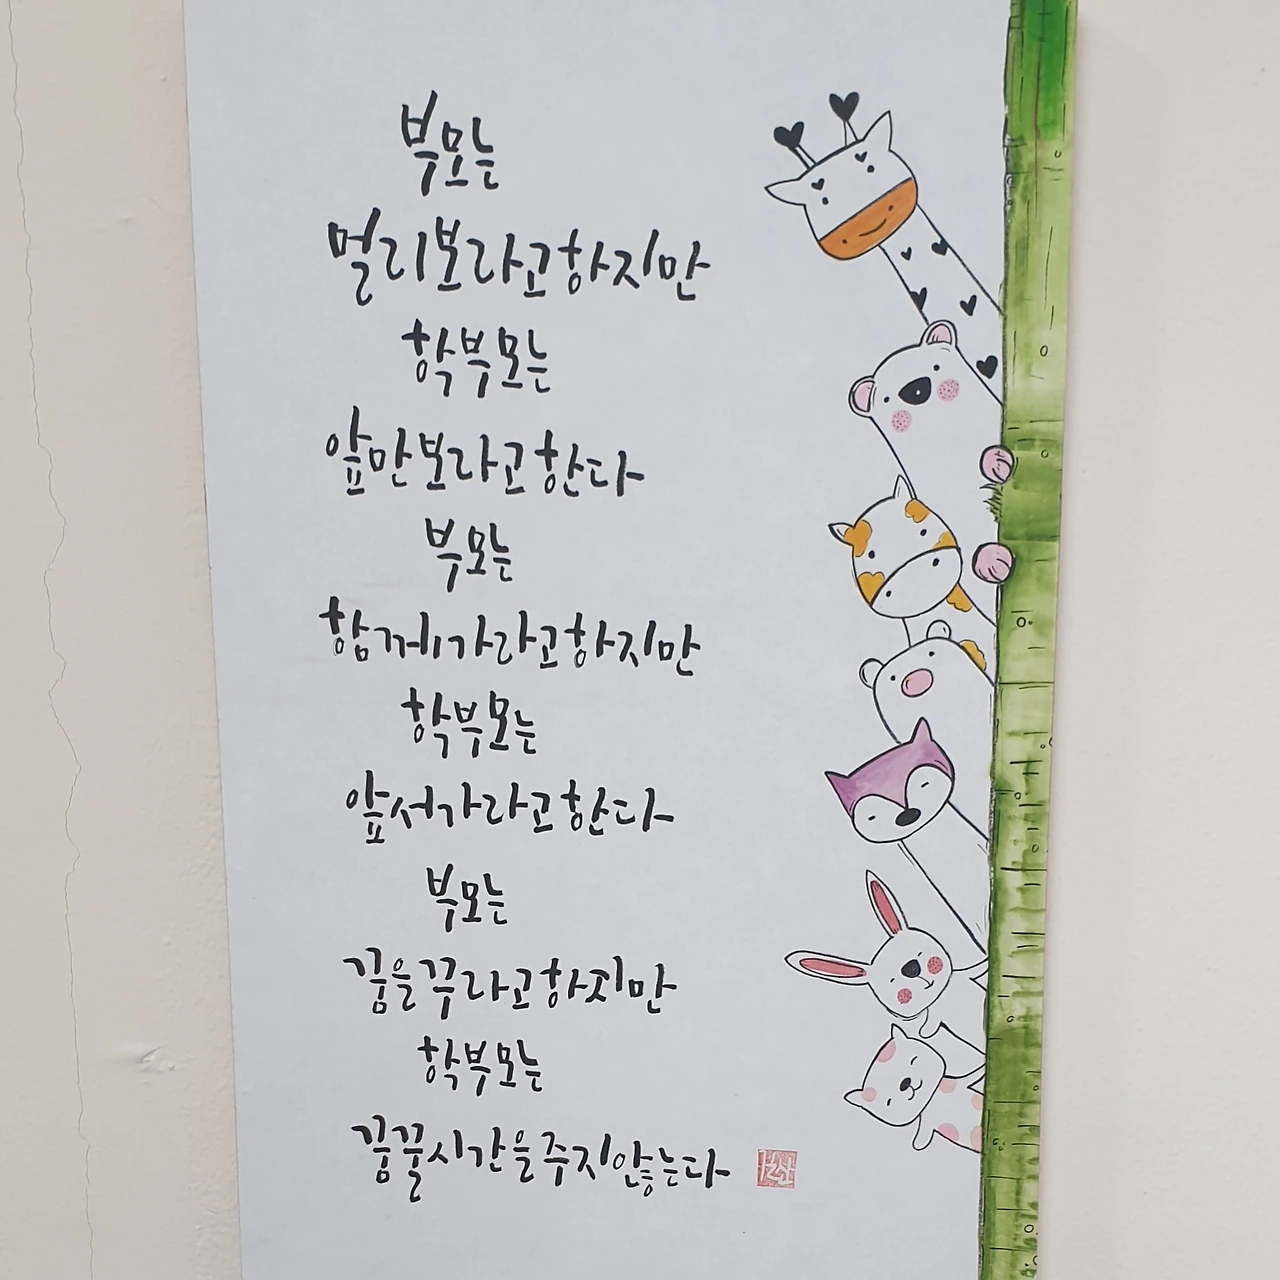 부모는
멀리보라고하지만
학부모는
앞만보라고한다
부모는
함께가라고하지만
학부모는
앞서가라고한다
부모는
꿈을꾸라고하지만
학부모는
꿈꿀시간을주지않는다